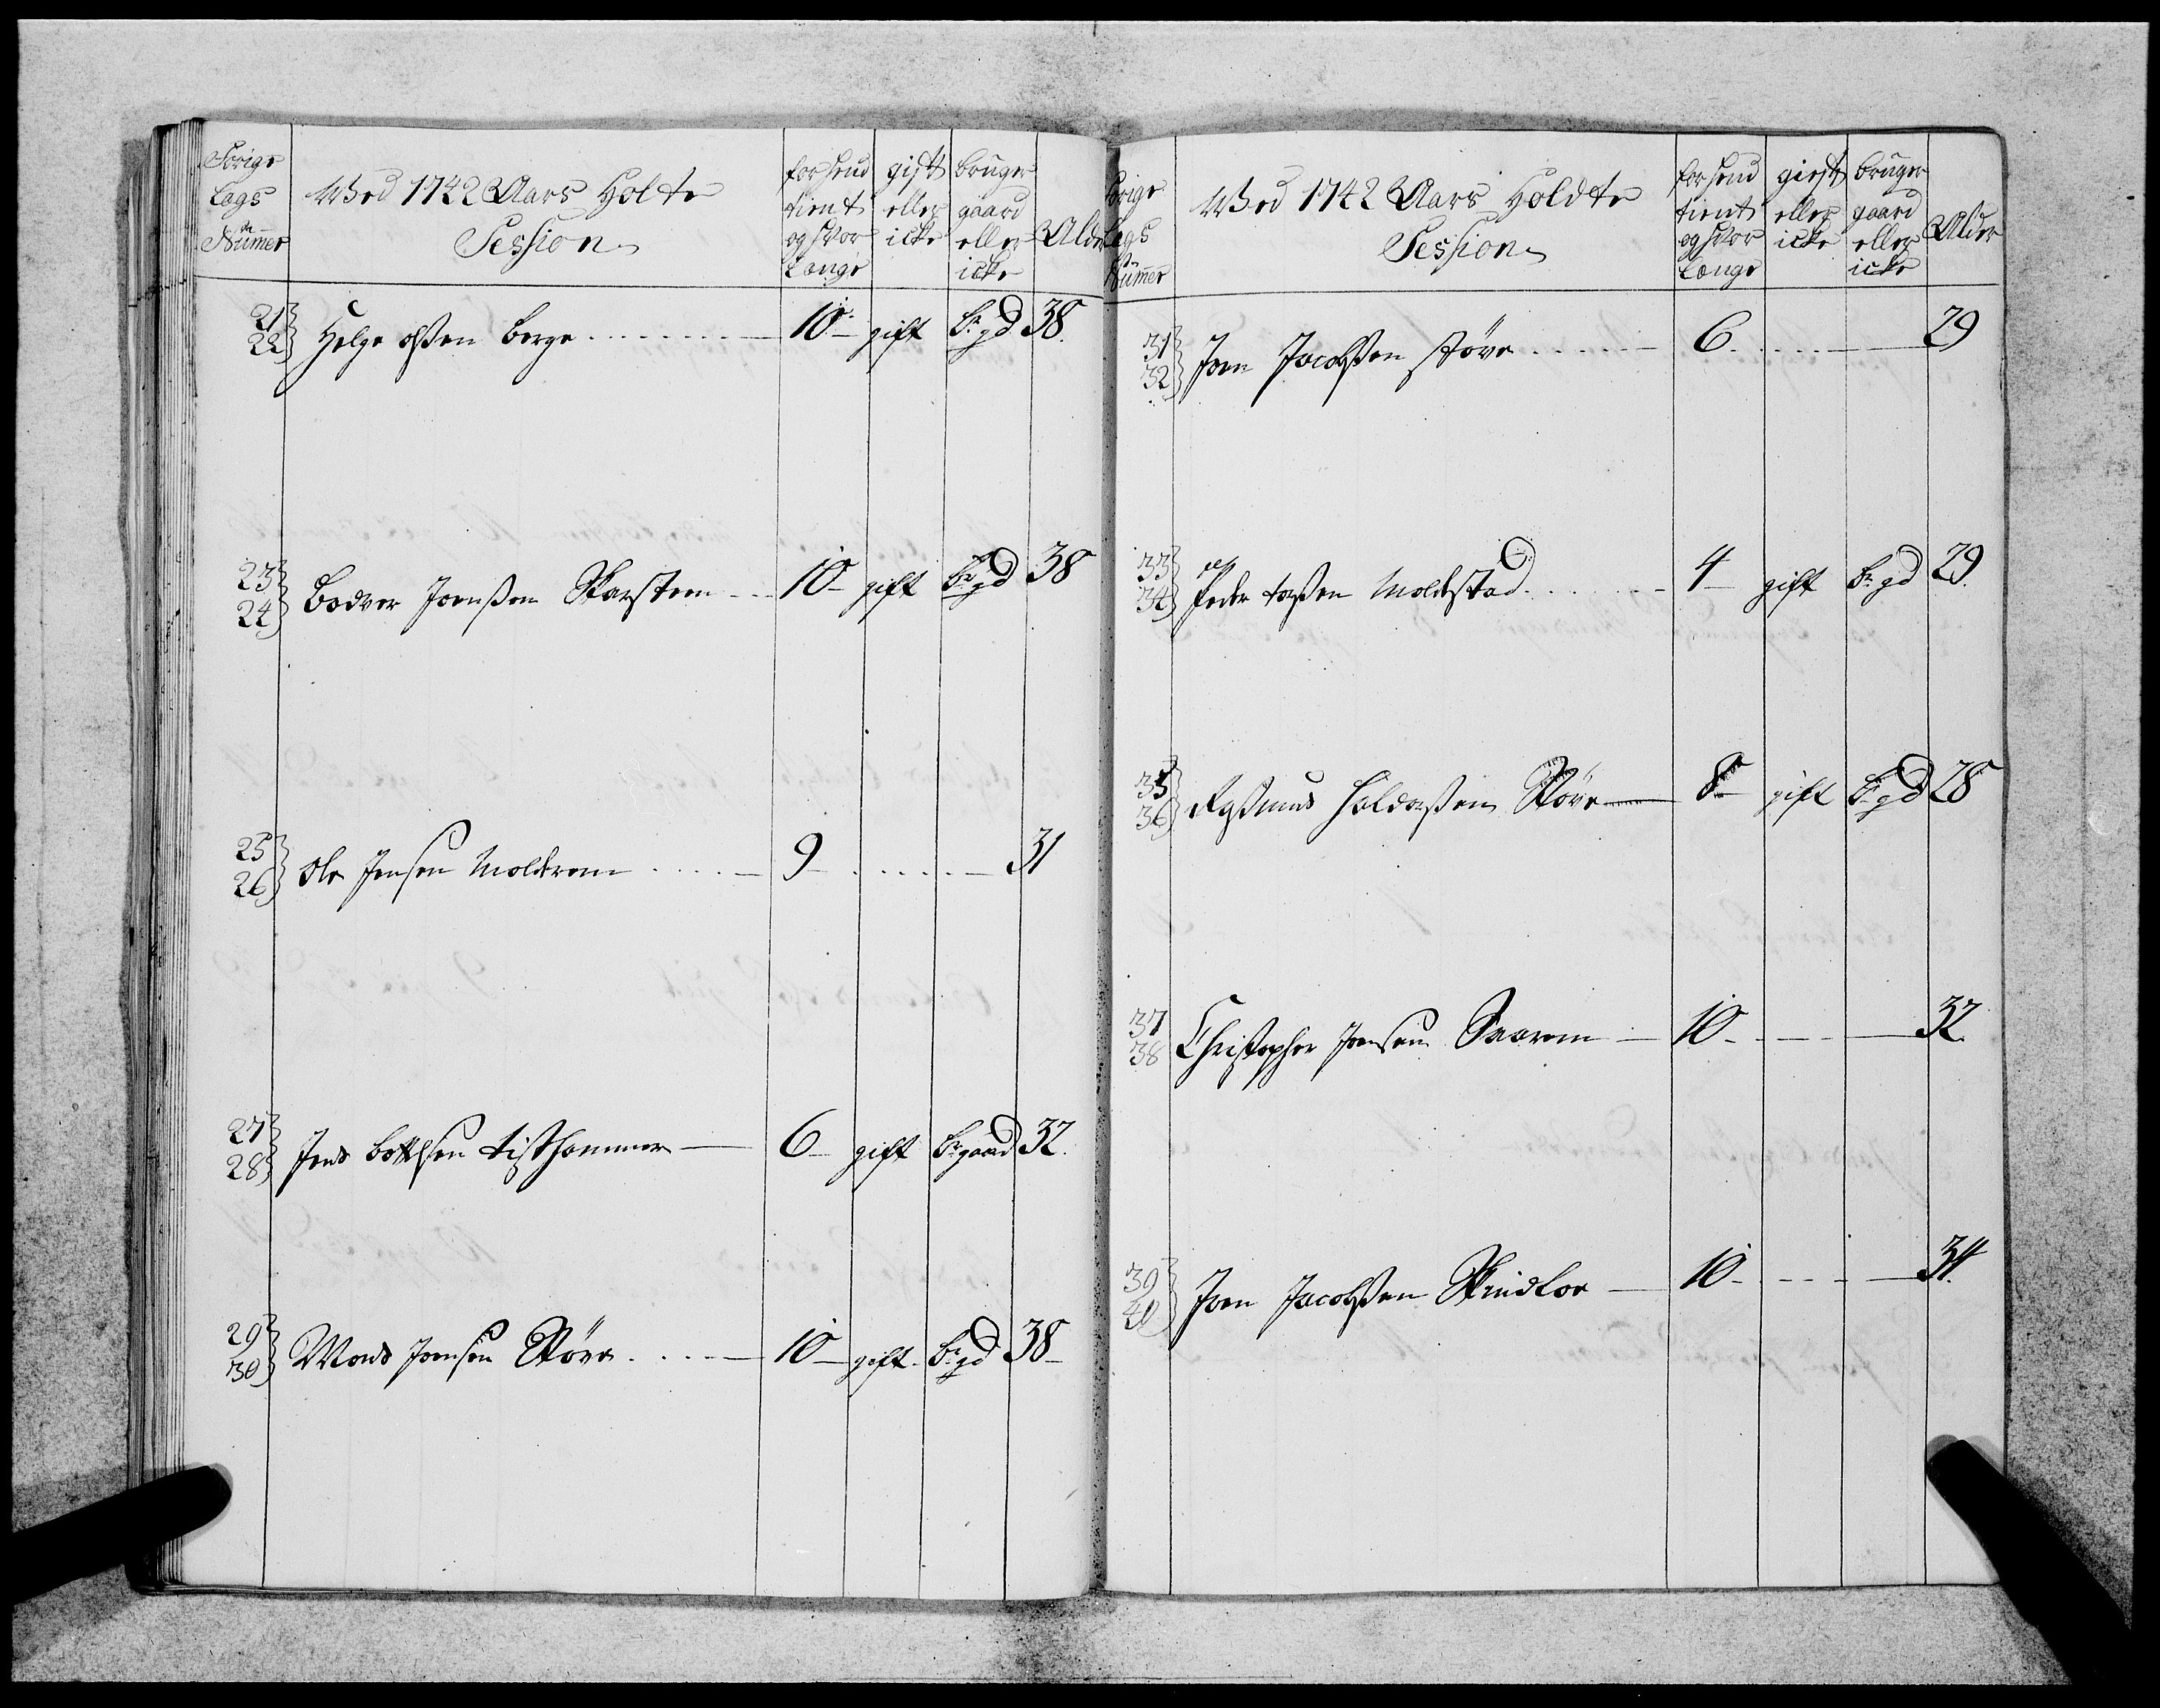 Forige Lags Nummer | Wed 1742 Aars Holdte Session | forhend tient og hvor Længe | gift eller icke | bruger gaard eller icke | Alder
21 22 Helge Olßen Berge 10 gift br gd 38
23 24 Bodver Joenßen Skarsteen 10 gift br gd 38
25 26 Ole Jensen Molderem 9 31
27 28 Jens bottelsen Tisthammer 6 gift br gaard 32
29 30 Mons Joensen Støve 10 gift br gd 38
Forige Lags Nummer | Wed 1742 Aars Holdte Session | forhend tient og hvor Længe | gieft eller icke | bruger gaard eller icke | Alder
31 32 Joen Jacobßen støve 6 29
33 34 Peder Moldestad 4 gift br gd 29
35 36 Raßmus Haldorßen Støve 8 gift br gd 28
37 38 Christopher Joensen 10 32
39 40 Joen Jacobßen 10 34